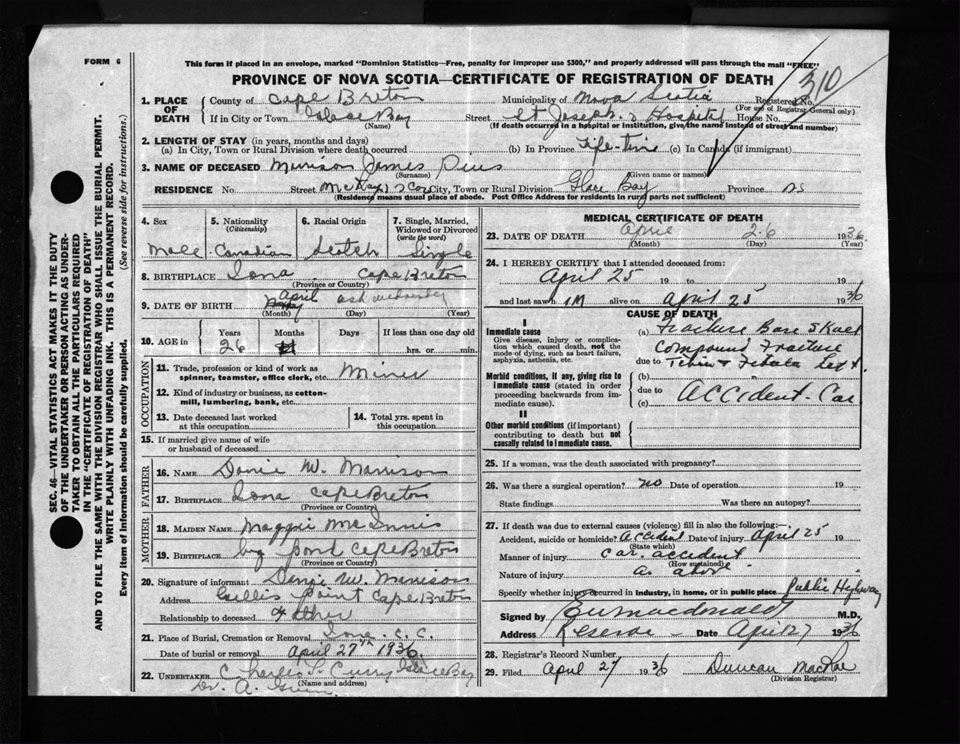 FORM 6
This form if placed in an envelope, marked "Dominion Statistics—Free, penalty for improper use $300," and properly addressed will pass through the mail "FREE"
PROVINCE OF NOVA SCOTIA—CERTIFICATE OF REGISTRATION OF DEATH
310
1. PLACE OF DEATH County of Cape Breton Municipality of Nova Scotia Registered No.
(For use of Registrar General only)
If in City or Town Glace Bay Street St Joseph's Hospital House No.
(Name) (If death occurred in a hospital or institution, give the name instead of street and number)
2. LENGTH OF STAY (in years, months and days)
(a) In City, Town or Rural Division where death occurred (b) In Province Life-time (c) In Canada (if immigrant)
3. NAME OF DECEASED Morrison James Pius
(Surname) (Given name or names)
RESIDENCE No. Street McKay's Cor City, Town or Rural Division Glace Bay Province NS
(Residence means usual place of abode. Post Office Address for residents in rural parts not sufficient)
4. Sex 5. Nationality (Citizenship) 6. Racial Origin 7. Single, Married, Widowed or Divorced (write the word)
Male Canadian Scotch Single
8. BIRTHPLACE Iona Cape Breton
(Province or Country)
9. DATE OF BIRTH April ash wednesday
(Month) (Day) (Year)
10. AGE in Years Months Days If less than one day old
26 hrs. or min.
OCCUPATION
11. Trade, profession or kind of work as spinner, teamster, office clerk, etc. Miner
12. Kind of industry or business, as cotton-mill, lumbering, bank, etc.
13. Date deceased last worked at this occupation 14. Total yrs. spent in this occupation
15. If married give name of wife or husband of deceased
FATHER
16. NAME Donie W. Morrison
17. BIRTHPLACE Iona Cape Breton
(Province or Country)
MOTHER
18. MAIDEN NAME Maggie McInnis
19. BIRTHPLACE big pond Cape Breton
(Province or Country)
20. Signature of informant Donie W. Morrison
Address Gillis Point Cape Breton
Relationship to deceased Father
21. Place of Burial, Cremation or Removal Iona. C. C.
Date of burial or removal April 27th 1936
22. UNDERTAKER Charles Curry Glace Bay
(Name and address)
Dr. A. Green
MEDICAL CERTIFICATE OF DEATH
23. DATE OF DEATH April 26 1936
(Month) (Day) (Year)
24. I HEREBY CERTIFY that I attended deceased from:
April 25 19 to 19
and last saw h IM alive on April 25 1936
CAUSE OF DEATH
I
Immediate cause
Give disease, injury or complication which caused death, not the mode of dying, such as heart failure, asphyxia, asthenia, etc.
(a) Fracture Base Skull
Compound Fracture
due to Tibia & Febula Left.
Morbid conditions, if any, giving rise to immediate cause (stated in order proceeding backwards from immediate cause).
(b)
due to ACCident-Car
(c)
II
Other morbid conditions (if important) contributing to death but not causally related to immediate cause.
25. If a woman, was the death associated with pregnancy?
26. Was there a surgical operation? no Date of operation 19
State findings Was there an autopsy?
27. If death was due to external causes (violence) fill in also the following:
Accident, suicide or homicide? Accident Date of injury April 25 19
(State which)
Manner of injury Car accident
(How sustained)
Nature of injury as above
Specify whether injury occurred in industry, in home, or in public place Public Highway
Signed by Macdonald M.D.
Address Reserve Date April 27 1936
28. Registrar's Record Number
29. Filed April 27 1936 Duncan MacRae
(Division Registrar)
SEC. 46—VITAL STATISTICS ACT MAKES IT THE DUTY
OF THE UNDERTAKER OR PERSON ACTING AS UNDER-
TAKER TO OBTAIN ALL THE PARTICULARS REQUIRED
IN THE "CERTIFICATE OF REGISTRATION OF DEATH"
AND TO FILE THE SAME WITH THE DIVISION REGISTRAR WHO SHALL ISSUE THE BURIAL PERMIT.
WRITE PLAINLY WITH UNFADING INK. THIS IS A PERMANENT RECORD.
Every item of information should be carefully supplied. (See reverse side for instructions.)